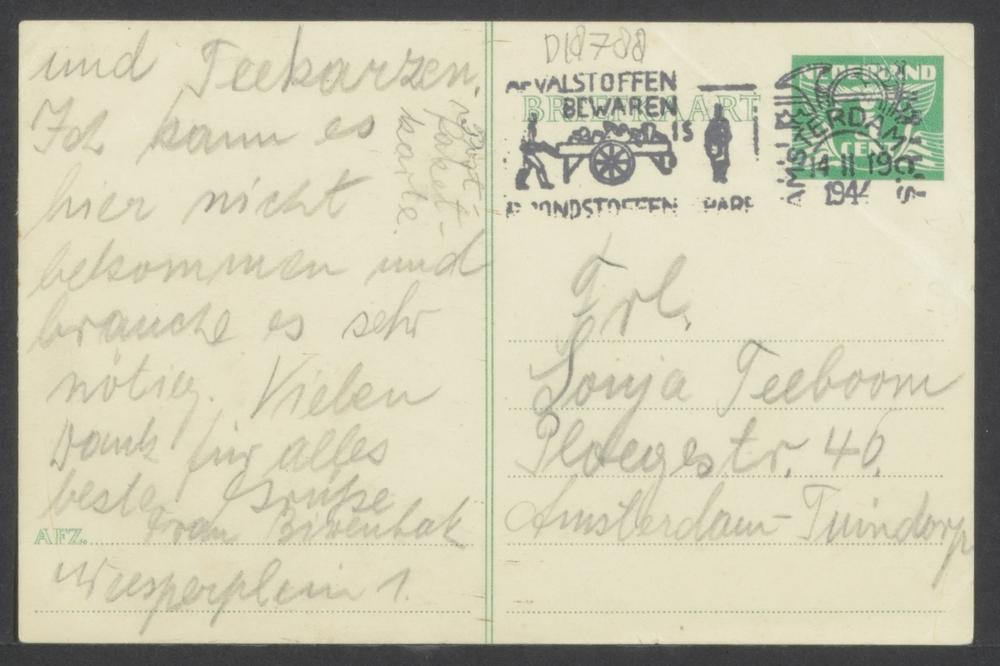 und Teekarzen.
Ich kann es
hier nicht
bekommen und
brauche es sehr
nötig. Vielen
Dank für alles
beste Grüße
Frau Birenhak
AFZ.
Weesperplein 1.
Paket-
karte.
D18788
AFVALSTOFFEN
BEWAREN
IS
GRONDSTOFFEN
BRIEFKAART
NEDERLAND
5
CENT
AMSTERDAM
14 II 19
1944
Frl.
Sonja Teeboom
Ploegstr. 46.
Amsterdam-Tuindorp